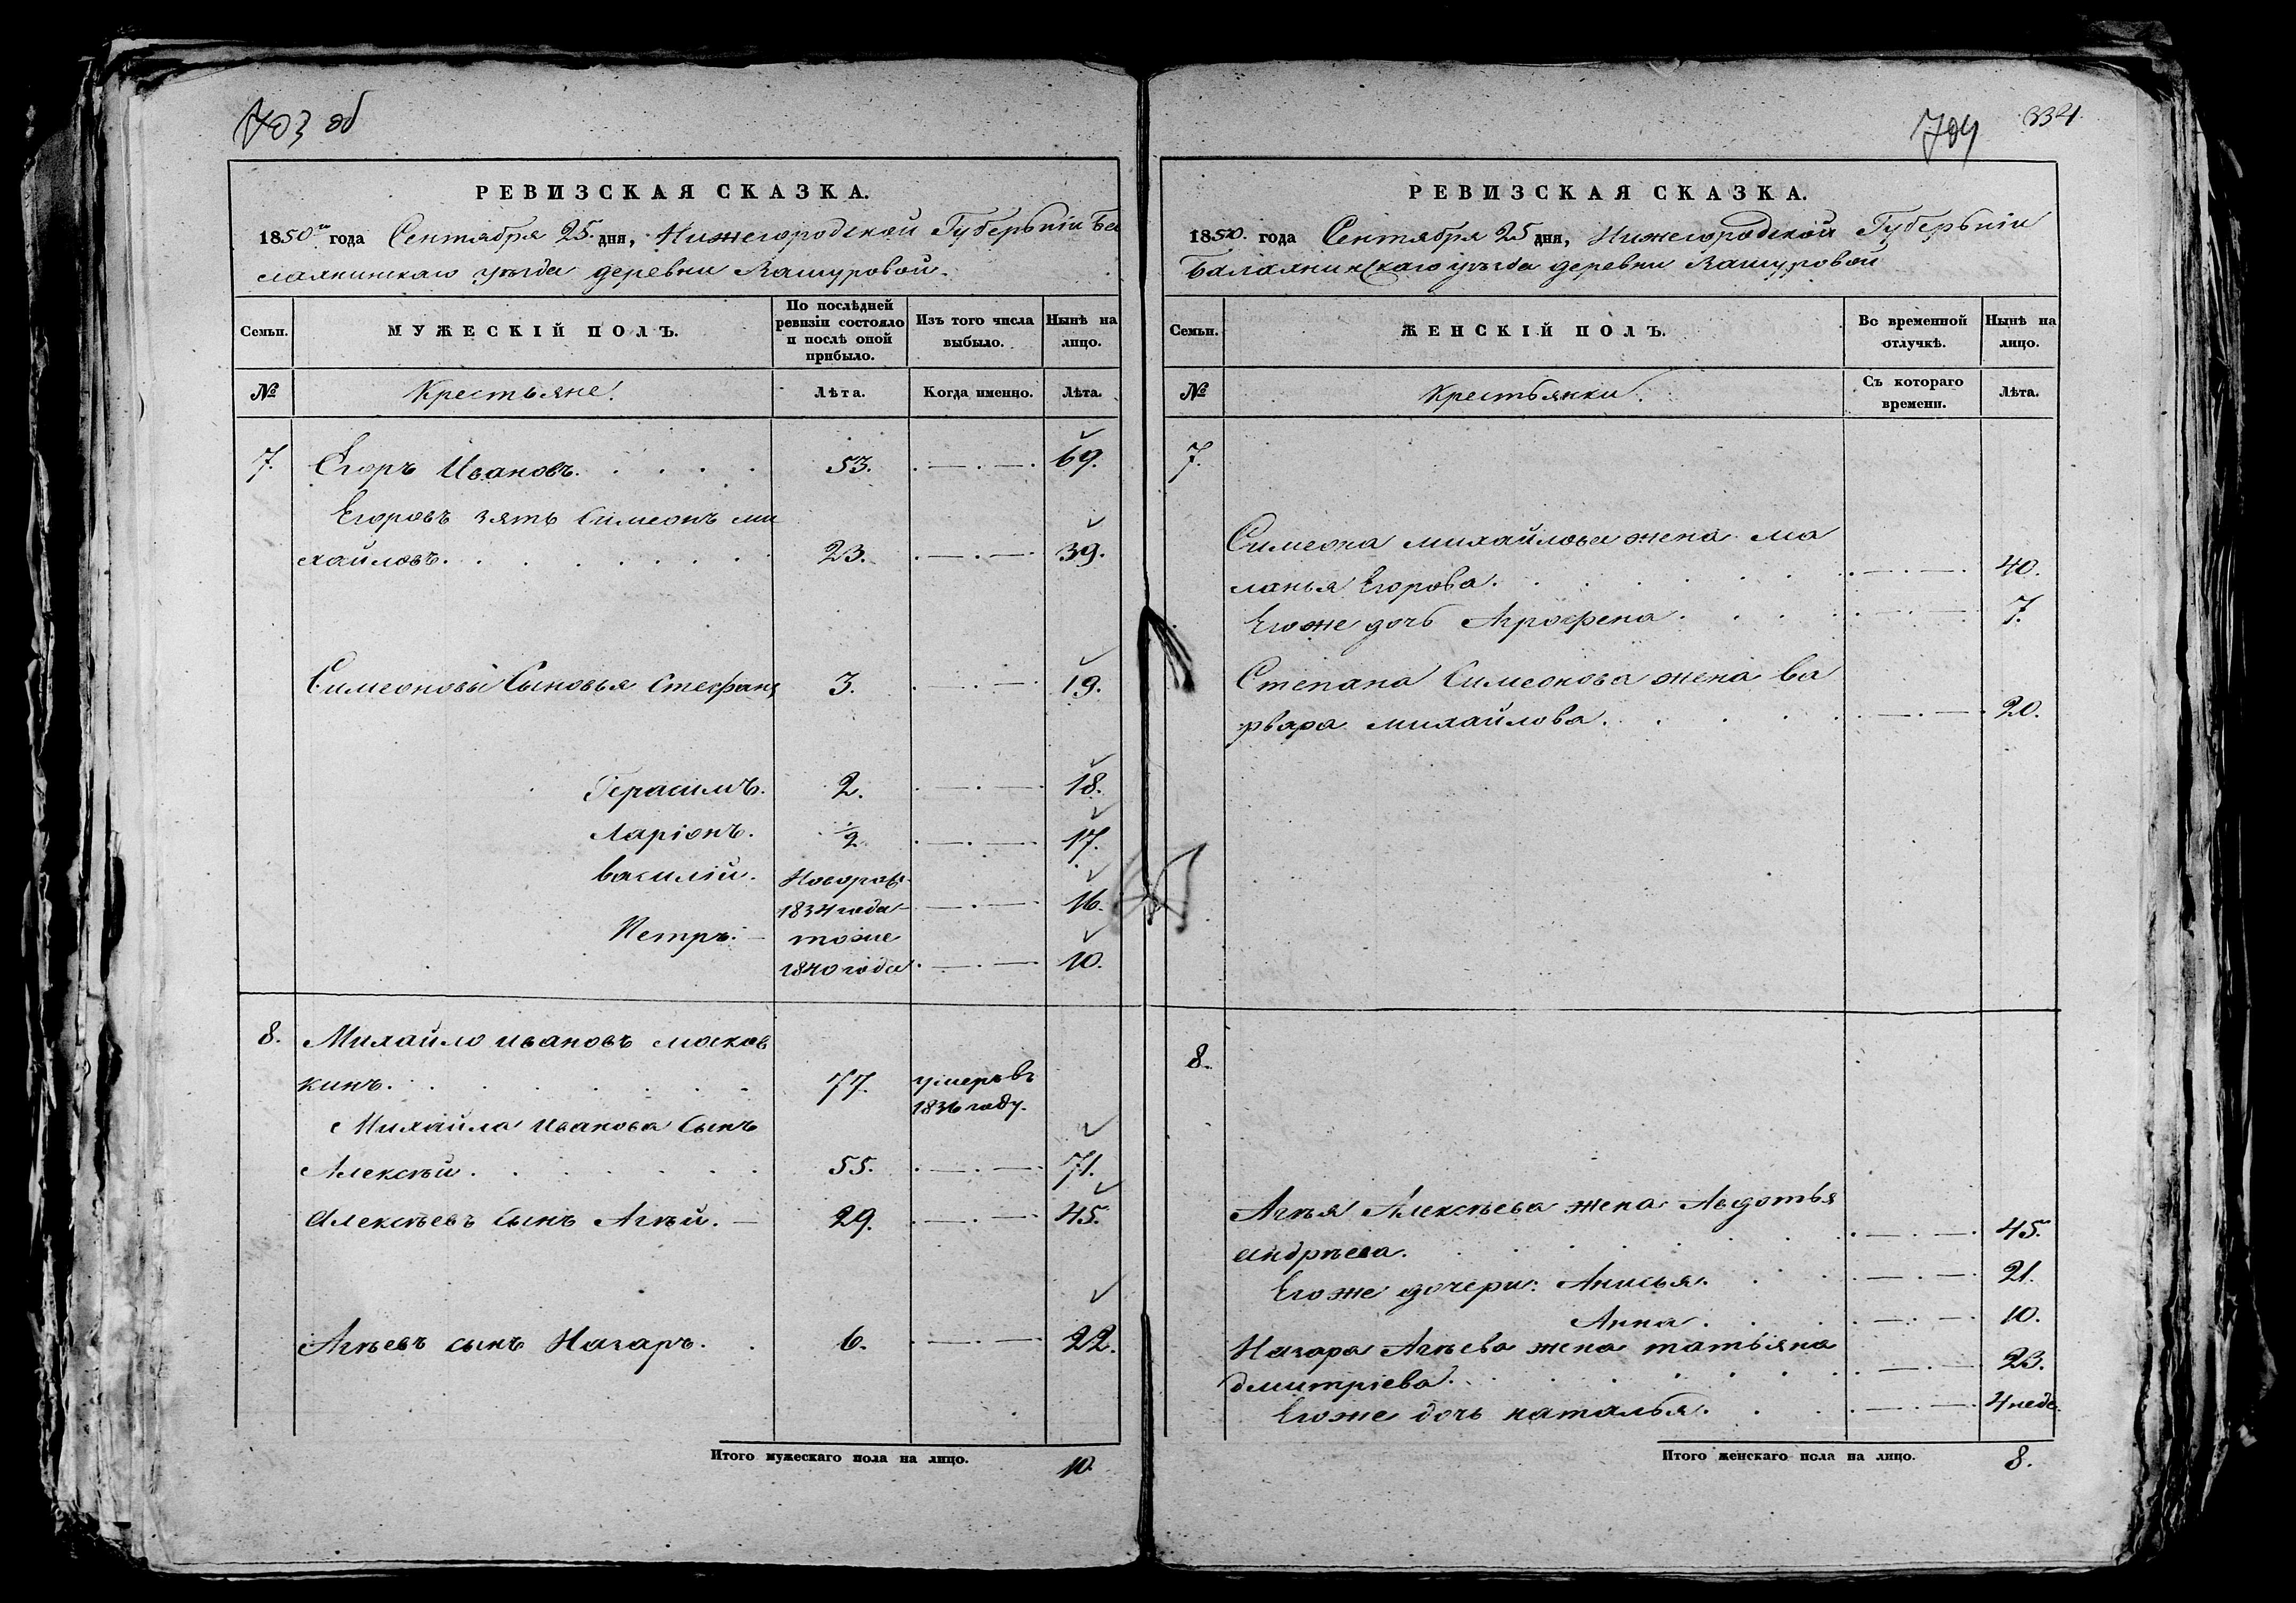 703 об
РЕВИЗСКАЯ СКАЗКА.
1850го года Сентября 25 дня, Нижегородской Губерьніи Ба
лахнинскаго уѣзда деревни Вашуровой.
Семьи.
МУЖЕСКІЙ ПОЛЪ.
По послѣдней ревизіи состояло и послѣ оной прибыло.
Изъ того числа выбыло.
Нынѣ на лицо.
№ Крестьяне. Лѣта. Когда именно. Лѣта.
7. Егоръ Ивановъ. 53. 69.
Егоровъ зять Симеонъ ми
хайловъ. 23. 39.
Симеоновы Сыновья Стефанъ 3. 19.
Герасимъ. 2. 18.
Ларіонъ. ½ 17.
василій. Новорож
1834 года 16.
Петръ. тоже
1840 года 10.
8. Михайло ивановъ
кинъ. 77. умеръ въ
1836 году.
Михайла иванова Сынъ
Алексѣй. 55. 71.
Алексѣевъ Сынъ Агѣй. 29. 45.
Агѣевъ сынъ Назаръ. 6. 22.
Итого мужескаго пола на лицо. 10.
704 334
РЕВИЗСКАЯ СКАЗКА.
1850. года Сентября 25 дня, Нижегородской Губерьніи
Балахнинскаго уѣзда деревни Вашуровой
Семьи.
ЖЕНСКІЙ ПОЛЪ.
Во временной отлучкѣ.
Нынѣ на лицо.
№ Крестьянки. Съ котораго времени. Лѣта.
7.
Симеона михайлова жена ма
ланья Егорова. 40.
Егоже дочь Агрофена. 7.
Степана Симеонова жена ва
рвара михайлова. 20.
8.
Агѣя Алексѣева жена Авдотья
андрѣева. 45.
Егоже дочери: Анисья. 21.
Анна. 10.
Назара Агѣева жена татьяна
дмитріева. 23.
Егоже дочь наталья. 4 неде
Итого женскаго пола на лицо. 8.